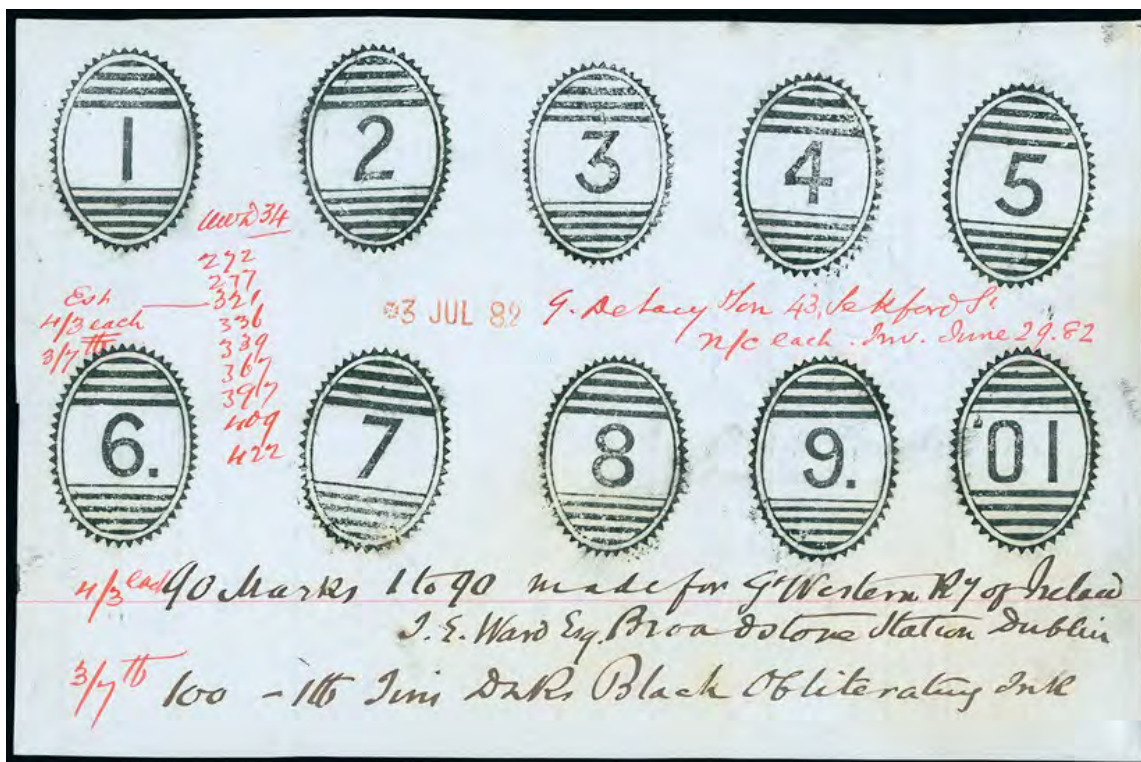 1 2 3 4 5
34
272
277
Esh 321
4/3 each 336
3/7 lb 339
367
397
409
422
3 JUL 82
G. Delacy & Son 43, Sekford St.
n/c each. Inv. June 29. 82
6. 7 8 9. '01
4/3 each 90 Marks 1 to 90 made for Gt Western Ry of Ireland
J. E. Ward Esq. Broadstone Station Dublin
3/7 lb 100 - 1lb Tins Black Obliterating Ink